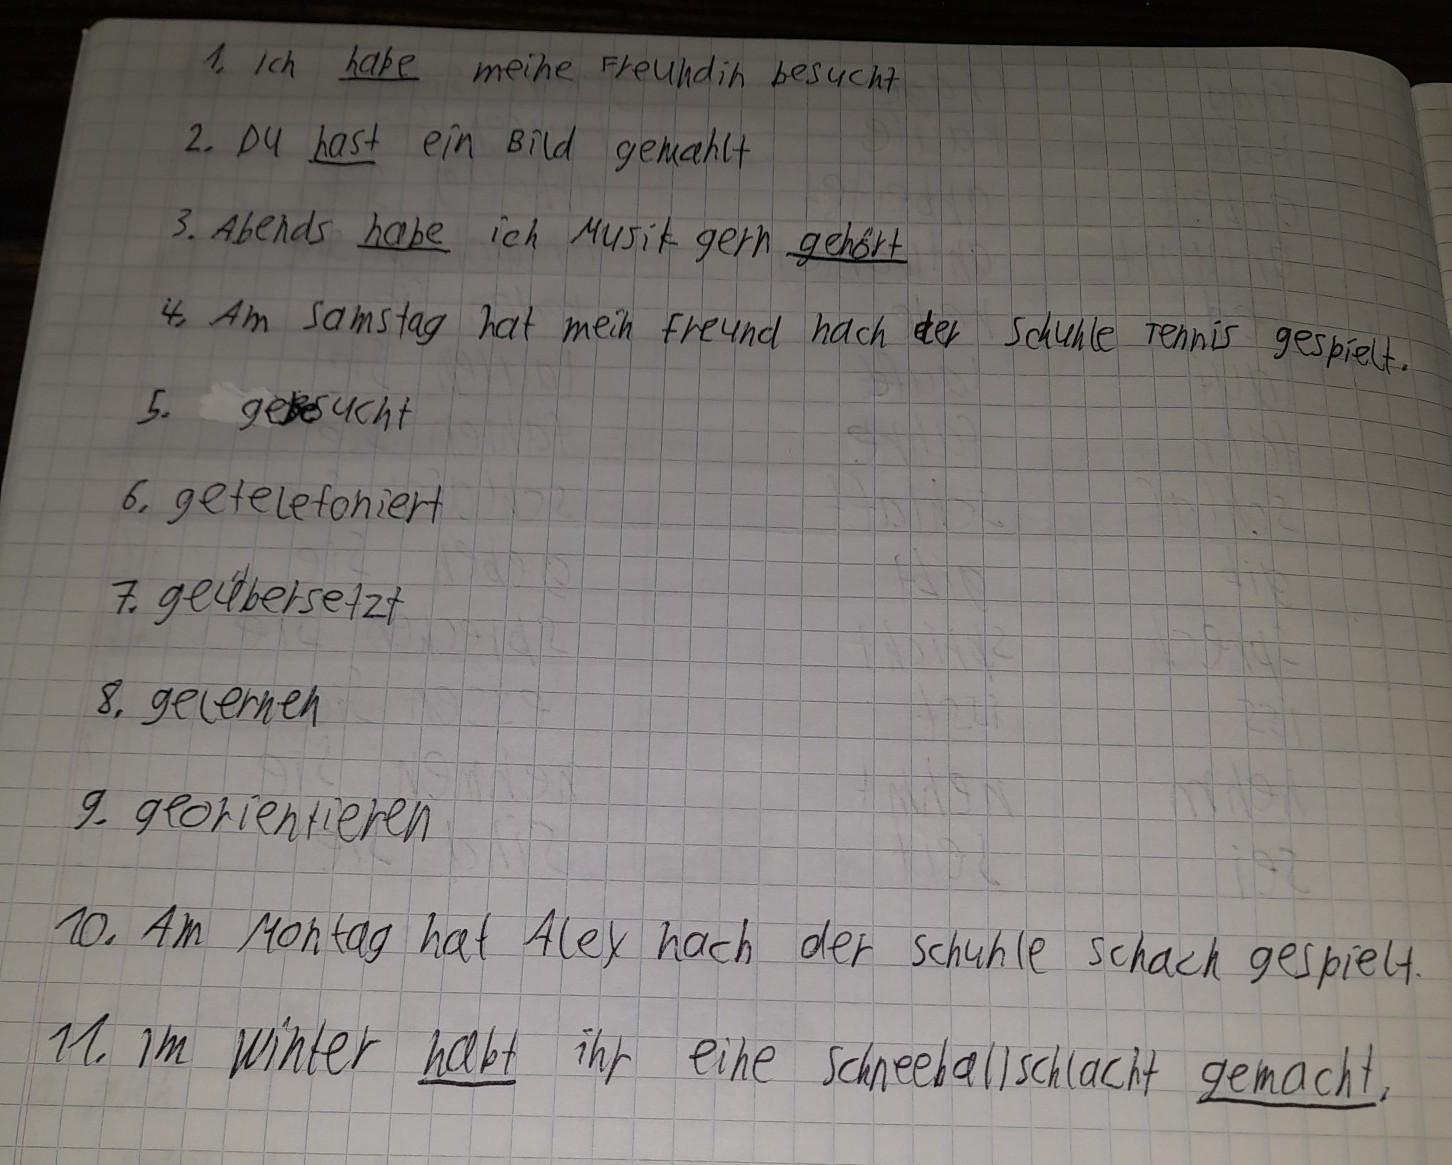 1. Ich habe meine Freundin besucht
2. Du hast ein Bild gemahlt
3. Abends habe ich Musik gern gehört
4. Am Samstag hat mein Freund nach der Schuhle Tennis gespielt.
5. gesucht
6. getelefoniert
7. geübersetzt
8. gelernen
9. georientieren
10. Am Montag hat Alex nach der Schuhle Schach gespielt.
11. im Winter habt ihr eine Schneeballschlacht gemacht.